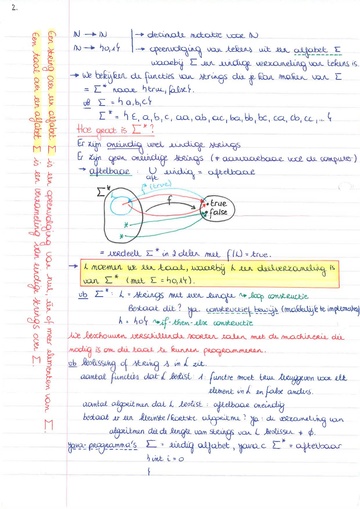 2
ℕ → ℕ | → decimale notatie voor ℕ
ℕ → {0,1}* | → opeenvolging van tekens uit een alfabet Σ
waarbij Σ een eindige verzameling van tekens is.
→ we bekijken de functies van strings die je kan maken van Σ
= Σ* naar {true, false}.
vb Σ = {a,b,c}
Σ* = {ε, a, b, c, aa, ab, ac, ba, bb, bc, ca, cb, cc, …}
Hoe groot is Σ*?
Er zijn oneindig veel eindige strings
Er zijn geen oneindige strings (* aanvaardbaar voor de computer)
→ aftelbaar: ∪ eindig = aftelbaar
aft
Σ* f⁻¹(true)
L f true
false
= verdeelt Σ* in 2 delen met f(L) = true.
→ L noemen we een taal, waarbij L een deelverzameling is
van Σ* (met Σ = {0,1}).
vb Σ*: L = strings met even lengte → loop constructie
Bestaat dit? Ja constructief bewijs (makkelijk te implementeren)
L = {0} → if-then-else constructie
We beschouwen verschillende soorten talen met de machinerie die
nodig is om die taal te kunnen programmeren.
vb beslissing of string s in L zit.
aantal functies dat L beslist: 1: functie moet true teruggeven voor elk
element in L en false anders.
aantal algoritmen dat L beslist: aftelbaar oneindig
bestaat er een kleinste/kortste algoritme? Ja: de verzameling van
algoritmen die de lengte van strings van L beslissen ≠ ∅.
Java-programma's Σ = eindig alfabet, Java ⊂ Σ* = aftelbaar
{int i = 0
{
Een string over een alfabet Σ is een opeenvolging van nul, één of meer elementen van Σ.
Een taal over een alfabet Σ is een verzameling van eindige strings over Σ.